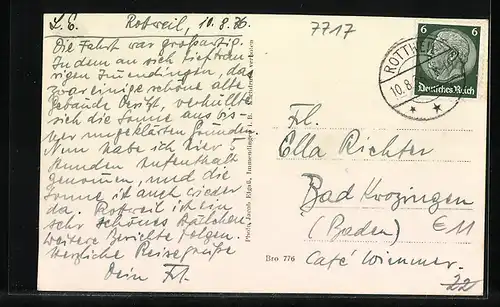 L. E. Rottweil, 10.8.36.
Die Fahrt war großartig.
In dem an sich tieftrau-
rigen Immendingen, das
zwar einige schöne alte
Gebäude besitzt, verhüllt
sich die Sonne aus bis-
her ungeklärten Gründen.
Nun habe ich hier 5
Stunden Aufenthalt
genommen, und die
Sonne ist auch wieder
da. Rottweil ist ein
sehr schönes Städtchen.
Weitere Berichte folgen.
Herzliche Reisegrüße
Dein
Photo, Jacob Immendingen
verboten
Bro 776
7717
6 6
Deutsches Reich
ROTTWEIL
10.8.
Frl.
Ella Richter
Bad Krozingen
(Baden)
Café Wimmer.
E11
22